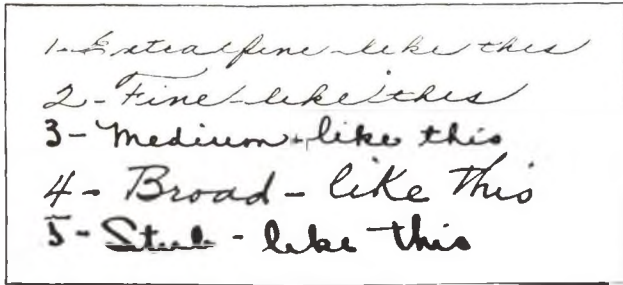 1-Extra fine-like this
2-Fine-like this
3-Medium-like this
4-Broad-like this
5-Stub-like this